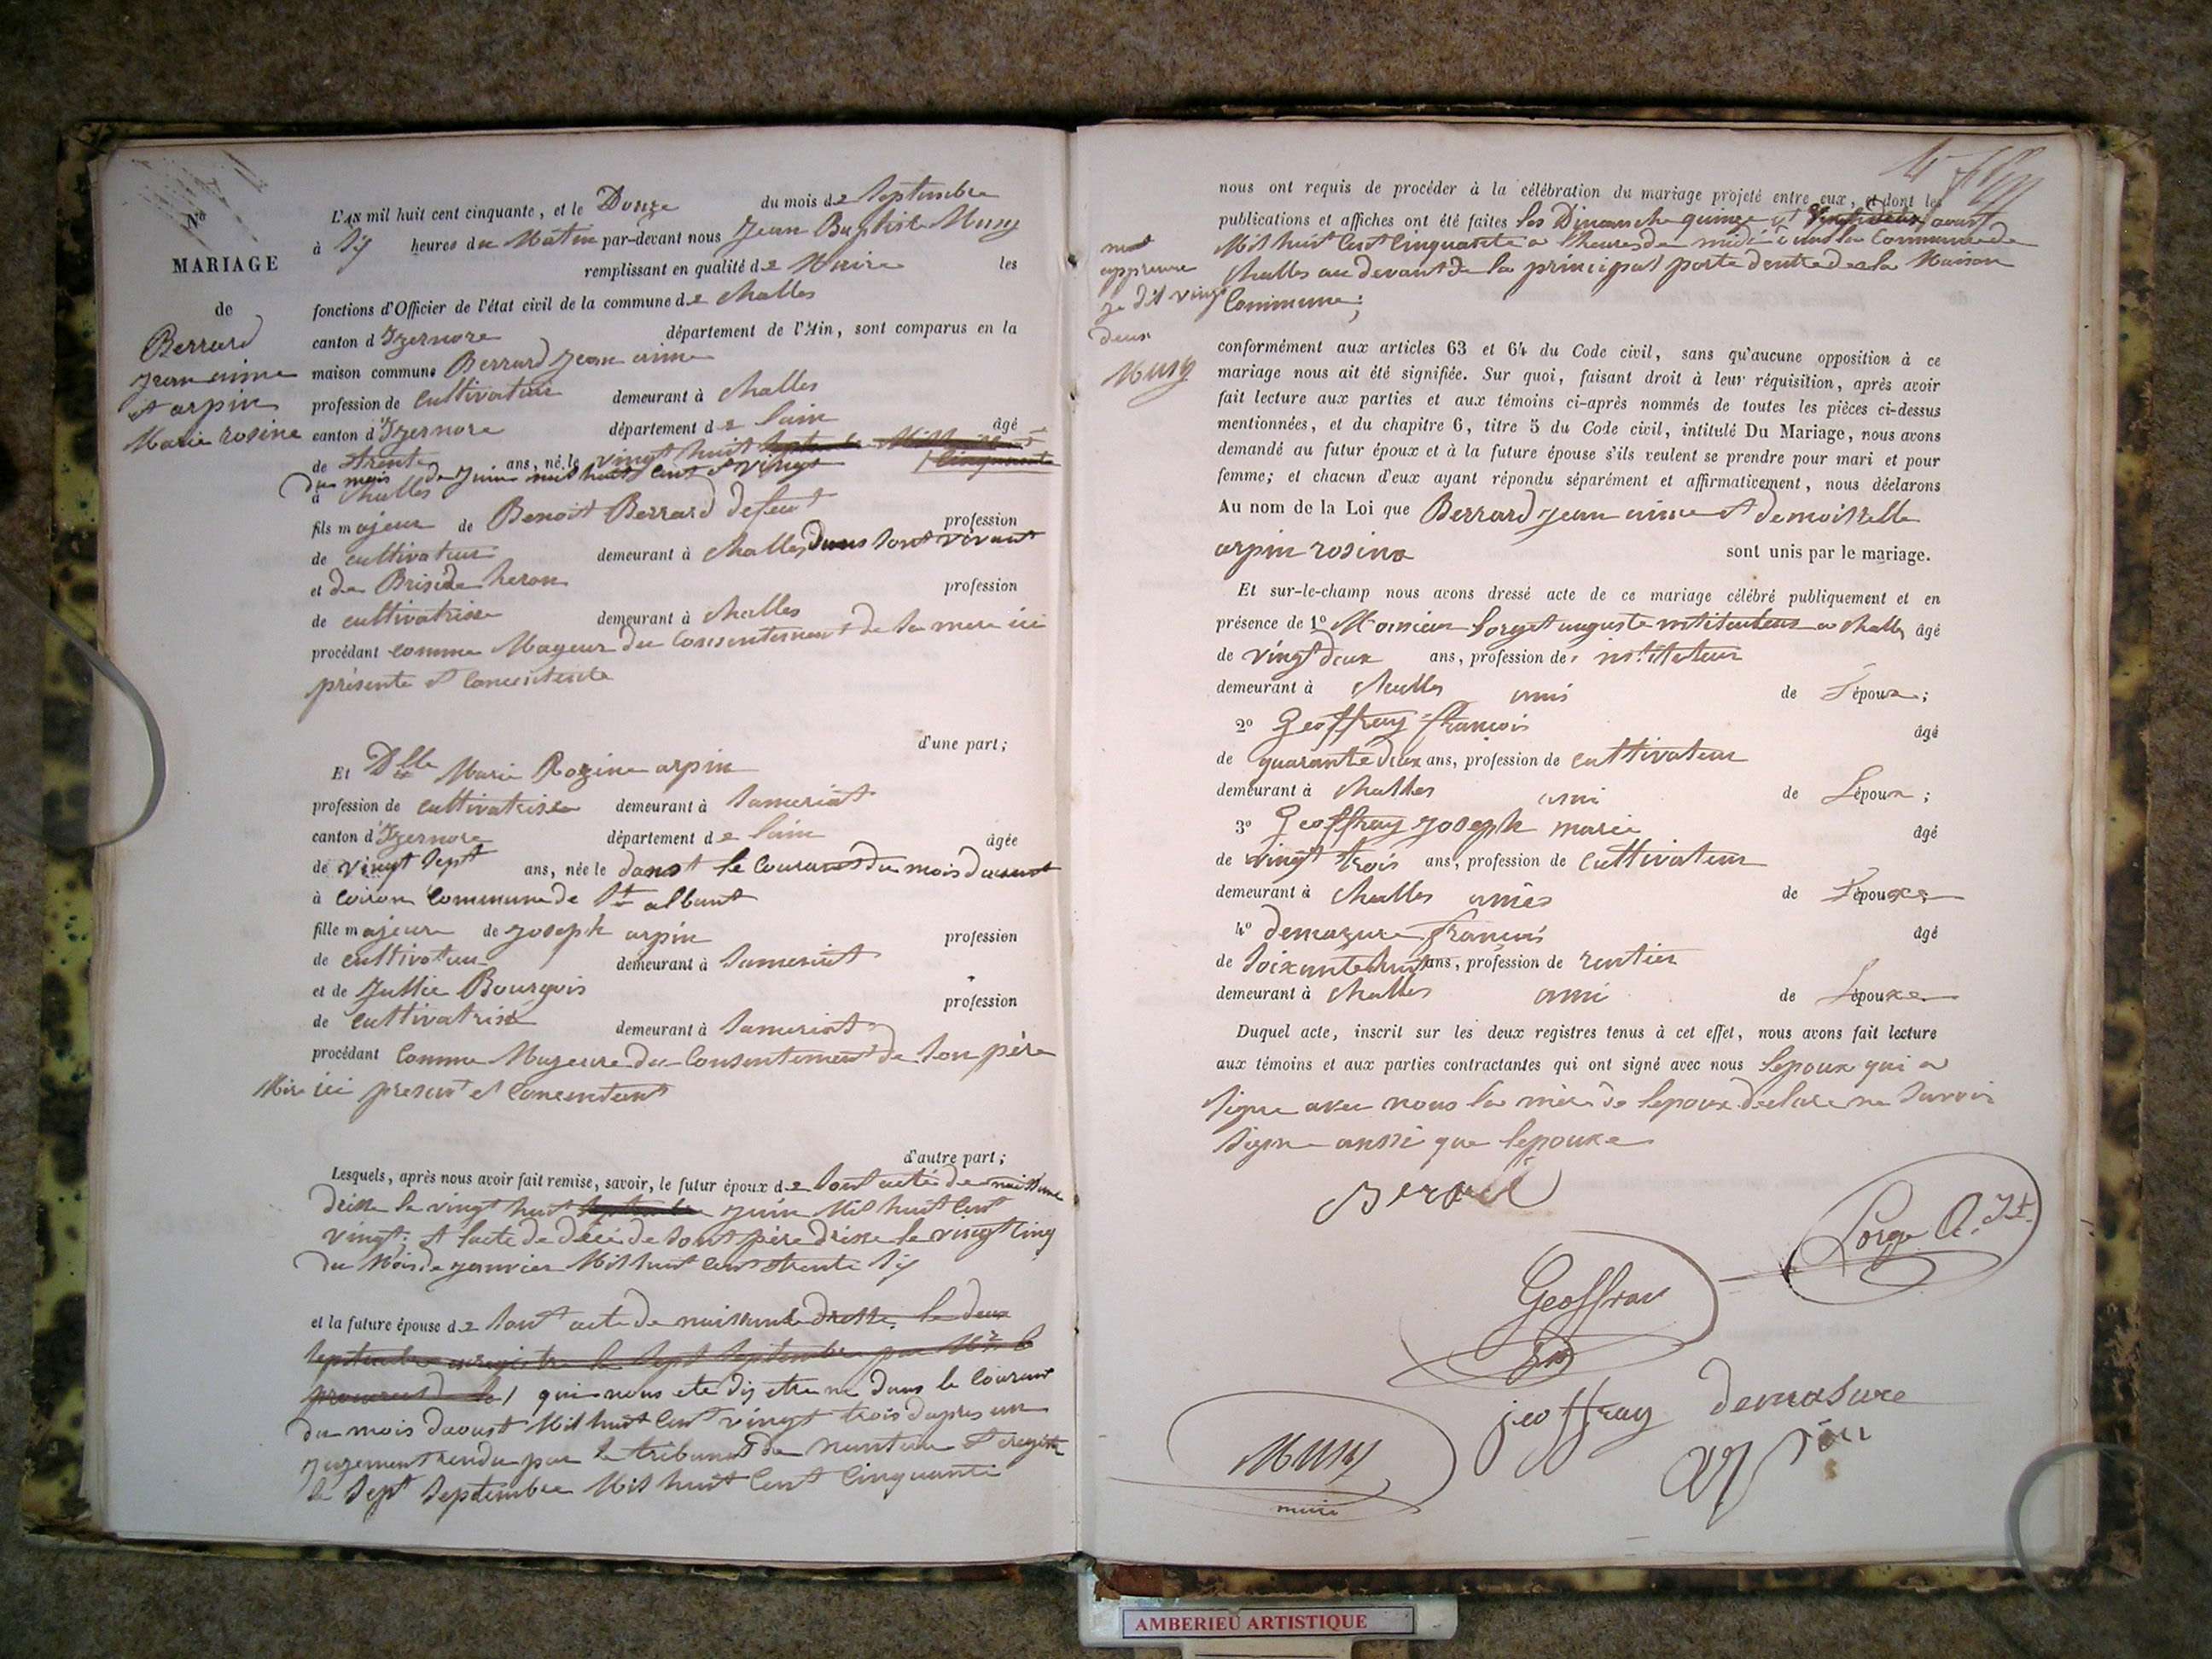 No
MARIAGE
de
Berrard
jean aime
et arpin
Marie rosine
L'AN mil huit cent cinquante, et le Douze du mois de Septembre
à Six heures du Matin par-devant nous Jean Baptiste Musy
remplissant en qualité de Maire les
fonctions d'Officier de l'état civil de la commune de challes
canton d'Izernore département de l'Ain, sont comparus en la
maison commune Berrard jean aime
profession de Cultivateur demeurant à challes
canton d'Izernore département de lain âgé
de trente ans, né le vingt huit
du mois de juin mil huit cent et vingt
à challes
fils majeur de Benoit Berrard defunt profession
de cultivateur demeurant à challes Dans sont vivant
et de heron profession
de cultivatrise demeurant à challes
procédant comme Mageur du Consentement de sa mere ici
présente et Concentente
d'une part;
Et Dlle Marie Rozine arpin
profession de cultivatrise demeurant à Samoriat
canton d'Izernore département de lain âgée
de vingt sept ans, née le dans le Courant du mois Daoust
à Coiron Commune de St albant
fille majeure de joseph arpin profession
de cultivateur demeurant à Samoriat
et de Jullie Bourgois profession
de cultivatrise demeurant à Samoriat
procédant Comme Mageure du Consentement de Son père
Mère ici present et Concentent
d'autre part;
Lesquels, après nous avoir fait remise, savoir, le futur époux de Sont acte de naissance
drisse le vingt huit juin Mil huit Cent
vingt; et lacte de décé de Sont père drisse le vingt Cinq
du Mois de janvier Mil huit Cent trente Six
et la future épouse de Sont acte de naissance drisse le deux
Septembre enregistre le Sept Septembre par Mr
qui nous ete dis etre ne dans le Courant
du mois daoust Mil huit Cent vingt trois dapres un
jugement rendu par le tribunal de nantua et
le Sept Septembre Mil huit Cent Cinquante
nous ont requis de procéder à la célébration du mariage projeté entre eux, et dont les
publications et affiches ont été faites les Dimanche quinze et vingt deux aoust
Mil huit Cent Cinquante a lheure de midi dans la Commune de
challes au devant de la principal porte dentré de la Maison
Commune;
mot
appreuve
je dit vingt
deux
Musy
conformément aux articles 63 et 64 du Code civil, sans qu'aucune opposition à ce
mariage nous ait été signifiée. Sur quoi, faisant droit à leur réquisition, après avoir
fait lecture aux parties et aux témoins ci-après nommés de toutes les pièces ci-dessus
mentionnées, et du chapitre 6, titre 5 du Code civil, intitulé Du Mariage, nous avons
demandé au futur époux et à la future épouse s'ils veulent se prendre pour mari et pour
femme; et chacun d'eux ayant répondu séparément et affirmativement, nous déclarons
Au nom de la Loi que Berrard jean aime et demoiselle
arpin rosine sont unis par le mariage.
Et sur-le-champ nous avons dressé acte de ce mariage célébré publiquement et en
présence de 1º Monsieur Sorget auguste instituteur a challes âgé
de vingt deux ans, profession de institeteur
demeurant à challes ami de l'époux;
2º Geoffray francois âgé
de quarante deux ans, profession de cultivateur
demeurant à challes ami de Lépoux;
3º Geoffray joseph marie âgé
de vingt trois ans, profession de cultivateur
demeurant à challes amis de l'épouxe;
4º demazure francois âgé
de Soixante huit ans, profession de rentier
demeurant à challes ami de Lépouxe
Duquel acte, inscrit sur les deux registres tenus à cet effet, nous avons fait lecture
aux témoins et aux parties contractantes qui ont signé avec nous lepoux qui a
signe avec nous la mère de lepoux declare ne Savoir
signe aussi que lepouxe
Berard
Geoffray
geoffray
demasure
Musy
maire
AMBERIEU ARTISTIQUE